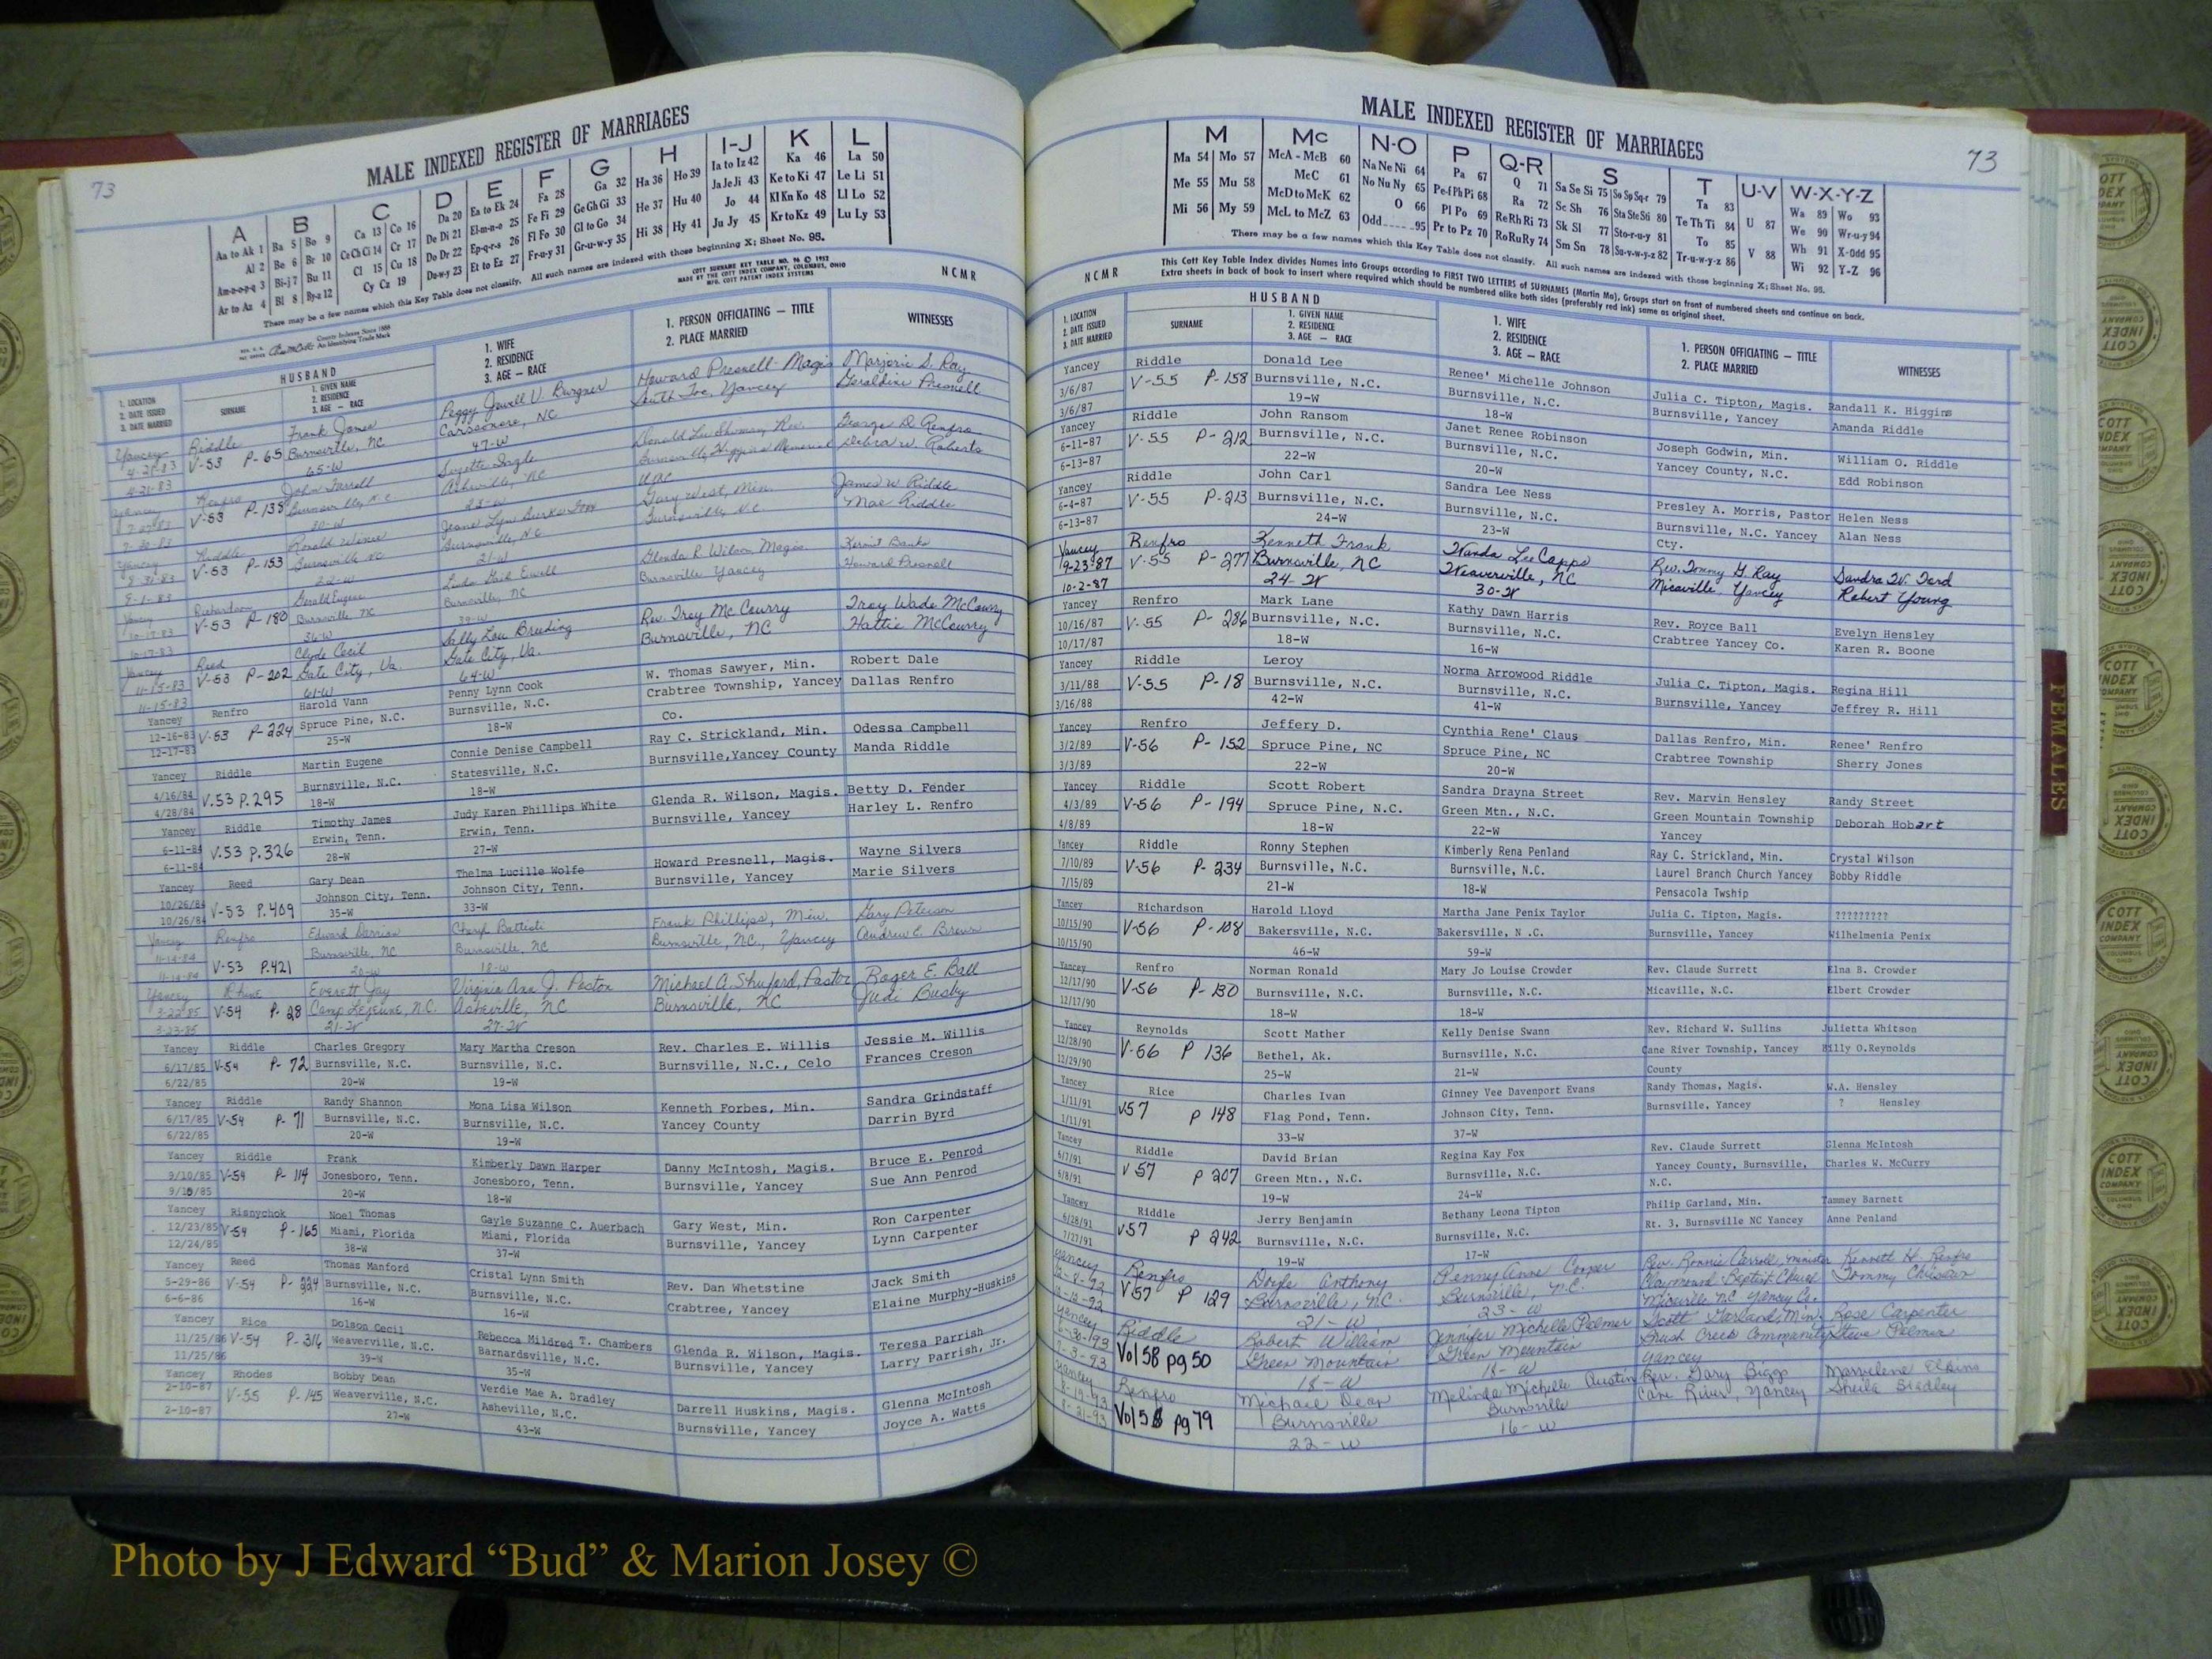 73
MALE INDEXED REGISTER OF MARRIAGES
A B C D E F G H I-J K L
Aa to Ak 1 Ba 5 Bo 9 Ca 13 Co 16 Da 20 Ea to Ek 24 Fa 28 Ga 32 Ha 36 Ho 39 Ia to Iz 42 Ka 46 La 50
Al 2 Be 6 Br 10 Ce Ch Ci 14 Cr 17 De Di 21 El-m-n-o 25 Fe Fi 29 Ge Gh Gi 33 He 37 Hu 40 Ja Je Ji 43 Ke to Ki 47 Le Li 51
Am-n-o-p-q 3 Bi-j 7 Bu 11 Cl 15 Cu 18 Do Dr 22 Ep-q-r-s 26 Fl Fo 30 Gl to Go 34 Hi 38 Hy 41 Jo 44 Kl Kn Ko 48 Ll Lo 52
Ar to Az 4 Bl 8 By-z 12 Cy Cz 19 Du-w-y 23 Et to Ez 27 Fr-u-y 31 Gr-u-w-y 35 Ju Jy 45 Kr to Kz 49 Lu Ly 53
There may be a few names which this Key Table does not classify. All such names are indexed with those beginning X; Sheet No. 95.
COTT SURNAME KEY TABLE NO. 96 © 1952
MADE BY THE COTT INDEX COMPANY, COLUMBUS, OHIO
MFG. COTT PATENT INDEX SYSTEMS
NCMR
County Indexes Since 1888
An Identifying Trade Mark
HUSBAND
1. LOCATION
2. DATE ISSUED
3. DATE MARRIED
SURNAME
1. GIVEN NAME
2. RESIDENCE
3. AGE — RACE
1. WIFE
2. RESIDENCE
3. AGE — RACE
1. PERSON OFFICIATING — TITLE
2. PLACE MARRIED
WITNESSES
Yancey Riddle Frank James Peggy Jewell V. Burgner Howard Presnell-Magis Marjorie S. Ray
4-21-83 V-53 P-65 Burnsville, NC NC South Toe, Yancey Geraldine Presnell
4-21-83 65-W 47-W
Renfro John Suzette Ingle Rev. George D. Renfro
V-53 P-135 Burnsville, N.C. Asheville, NC Debra W. Roberts
7-30-83 30-W UMC
Yancey Riddle Ronald Jeane Lyn Burke Gary West, Min. James W. Riddle
V-53 P-153 Burnsville NC Burnsville, NC Burnsville N.C. Mae Riddle
22-W 21-W
Yancey Richardson Gerald Eugene Linda Gail Ewell Glenda R. Wilson, Magis. Kermit Banks
10-17-83 V-53 P-180 Burnsville, NC Burnsville, NC Burnsville Yancey Howard Presnell
10-17-83 36-W 39-W
Yancey Reed Clyde Cecil Sally Lou Breeding Rev. Troy McCourry Troy Wade McCourry
11-15-83 V-53 P-202 Gate City, Va. Gate City, Va. Burnsville, NC Hattie McCourry
11-15-83 61-W 64-W
Yancey Renfro Harold Vann Penny Lynn Cook W. Thomas Sawyer, Min. Robert Dale
12-16-83 V-53 P-224 Spruce Pine, N.C. Burnsville, N.C. Crabtree Township, Yancey Dallas Renfro
12-17-83 25-W 18-W Co.
Yancey Riddle Martin Eugene Connie Denise Campbell Ray C. Strickland, Min. Odessa Campbell
4/16/84 V.53 P.295 Burnsville, N.C. Statesville, N.C. Burnsville,Yancey County Manda Riddle
4/28/84 18-W 18-W
Yancey Riddle Timothy James Judy Karen Phillips White Glenda R. Wilson, Magis. Betty D. Fender
6-11-84 V.53 P.326 Erwin, Tenn. Erwin, Tenn. Burnsville, Yancey Harley L. Renfro
6-11-84 28-W 27-W
Yancey Reed Gary Dean Thelma Lucille Wolfe Howard Presnell, Magis. Wayne Silvers
10/26/84 V-53 P.409 Johnson City, Tenn. Johnson City, Tenn. Burnsville, Yancey Marie Silvers
10/26/84 35-W 33-W
Yancey Renfro Edward Darrion Cheryl Battisti Frank Phillips, Min. Gary Peterson
11-14-84 V-53 P.421 Burnsville, NC Burnsville, NC Burnsville, N.C., Yancey Andrew C. Brown
11-14-84 20-W 18-W
Yancey Rhine Everett Jay Virginia Ann J. Paxton Michael A. Shuford, Pastor Roger E. Ball
3-22-85 V-54 P-28 Camp Lejeune, N.C. Asheville, NC Burnsville, NC Judi Busby
3-23-85 21-W 27-W
Yancey Riddle Charles Gregory Mary Martha Creson Rev. Charles E. Willis Jessie M. Willis
6/17/85 V-54 P-72 Burnsville, N.C. Burnsville, N.C. Burnsville, N.C., Celo Frances Creson
6/22/85 20-W 19-W
Yancey Riddle Randy Shannon Mona Lisa Wilson Kenneth Forbes, Min. Sandra Grindstaff
6/17/85 V-54 P-71 Burnsville, N.C. Burnsville, N.C. Yancey County Darrin Byrd
6/22/85 20-W 19-W
Yancey Riddle Frank Kimberly Dawn Harper Danny McIntosh, Magis. Bruce E. Penrod
9/10/85 V-54 P-114 Jonesboro, Tenn. Jonesboro, Tenn. Burnsville, Yancey Sue Ann Penrod
9/10/85 20-W 18-W
Yancey Risnychok Noel Thomas Gayle Suzanne C. Auerbach Gary West, Min. Ron Carpenter
12/23/85 V-54 P-165 Miami, Florida Miami, Florida Burnsville, Yancey Lynn Carpenter
12/24/85 38-W 37-W
Yancey Reed Thomas Manford Cristal Lynn Smith Rev. Dan Whetstine Jack Smith
5-29-86 V-54 P-224 Burnsville, N.C. Burnsville, N.C. Crabtree, Yancey Elaine Murphy-Huskins
6-6-86 16-W 16-W
Yancey Rice Dolson Cecil Rebecca Mildred T. Chambers Glenda R. Wilson, Magis. Teresa Parrish
11/25/86 V-54 P-316 Weaverville, N.C. Barnardsville, N.C. Burnsville, Yancey Larry Parrish, Jr.
11/25/86 39-W 35-W
Yancey Rhodes Bobby Dean Verdie Mae A. Bradley Darrell Huskins, Magis. Glenna McIntosh
2-10-87 V-55 P-145 Weaverville, N.C. Asheville, N.C. Burnsville, Yancey Joyce A. Watts
2-10-87 27-W 43-W
MALE INDEXED REGISTER OF MARRIAGES
73
M Mc N-O P Q-R S T U-V W-X-Y-Z
Ma 54 Mo 57 McA - McB 60 Na Ne Ni 64 Pa 67 Q 71 Sa Se Si 75 So Sp Sq-r 79 Ta 83 Wa 89 Wo 93
Me 55 Mu 58 McC 61 No Nu Ny 65 Pe-f Ph Pi 68 Ra 72 Sc Sh 76 Sta Ste Sti 80 Te Th Ti 84 U 87 We 90 Wr-u-y 94
Mi 56 My 59 McD to McK 62 O 66 Pl Po 69 Re Rh Ri 73 Sk Sl 77 Sto-r-u-y 81 To 85 Wh 91 X-Odd 95
McL to McZ 63 Odd 95 Pr to Pz 70 Ro Ru Ry 74 Sm Sn 78 Su-v-w-y-z 82 Tr-u-w-y-z 86 V 88 Wi 92 Y-Z 96
There may be a few names which this Key Table does not classify. All such names are indexed with those beginning X; Sheet No. 95.
NCMR
This Cott Key Table Index divides Names into Groups according to FIRST TWO LETTERS of SURNAMES (Martin Ma), Groups start on front of numbered sheets and continue on back.
Extra sheets in back of book to insert where required which should be numbered alike both sides (preferably red ink) same as original sheet.
HUSBAND
1. LOCATION
2. DATE ISSUED
3. DATE MARRIED
SURNAME
1. GIVEN NAME
2. RESIDENCE
3. AGE — RACE
1. WIFE
2. RESIDENCE
3. AGE — RACE
1. PERSON OFFICIATING — TITLE
2. PLACE MARRIED
WITNESSES
Yancey Riddle Donald Lee Renee' Michelle Johnson Julia C. Tipton, Magis. Randall K. Higgins
3/6/87 V-55 P-158 Burnsville, N.C. Burnsville, N.C. Burnsville, Yancey Amanda Riddle
3/6/87 19-W 18-W
Yancey Riddle John Ransom Janet Renee Robinson Joseph Godwin, Min. William O. Riddle
6-11-87 V-55 P-212 Burnsville, N.C. Burnsville, N.C. Yancey County, N.C. Edd Robinson
6-13-87 22-W 20-W
Yancey Riddle John Carl Sandra Lee Ness Presley A. Morris, Pastor Helen Ness
6-4-87 V-55 P-213 Burnsville, N.C. Burnsville, N.C. Burnsville, N.C. Yancey Alan Ness
6-13-87 24-W 23-W Cty.
Yancey Renfro Kenneth Frank Wanda Lee Capps Rev. Tommy G. Ray Sandra W. Ford
9-23-87 V-55 P-277 Burnsville, NC Weaverville, NC Micaville, Yancey Robert Young
10-2-87 24-W 30-W
Yancey Renfro Mark Lane Kathy Dawn Harris Rev. Royce Ball Evelyn Hensley
10/16/87 V-55 P-286 Burnsville, N.C. Burnsville, N.C. Crabtree Yancey Co. Karen R. Boone
10/17/87 18-W 16-W
Yancey Riddle Leroy Norma Arrowood Riddle Julia C. Tipton, Magis. Regina Hill
3/11/88 V-55 P-18 Burnsville, N.C. Burnsville, N.C. Burnsville, Yancey Jeffrey R. Hill
3/16/88 42-W 41-W
Yancey Renfro Jeffery D. Cynthia Rene' Claus Dallas Renfro, Min. Renee' Renfro
3/2/89 V-56 P-152 Spruce Pine, NC Spruce Pine, NC Crabtree Township Sherry Jones
3/3/89 22-W 20-W
Yancey Riddle Scott Robert Sandra Drayna Street Rev. Marvin Hensley Randy Street
4/3/89 V-56 P-194 Spruce Pine, N.C. Green Mtn., N.C. Green Mountain Township Deborah Hobart
4/8/89 18-W 22-W Yancey
Yancey Riddle Ronny Stephen Kimberly Rena Penland Ray C. Strickland, Min. Crystal Wilson
7/10/89 V-56 P-234 Burnsville, N.C. Burnsville, N.C. Laurel Branch Church Yancey Bobby Riddle
7/15/89 21-W 18-W Pensacola Twship
Yancey Richardson Harold Lloyd Martha Jane Penix Taylor Julia C. Tipton, Magis. ?????????
10/15/90 V-56 P-108 Bakersville, N.C. Bakersville, N .C. Burnsville, Yancey Wilhelmenia Penix
10/15/90 46-W 59-W
Yancey Renfro Norman Ronald Mary Jo Louise Crowder Rev. Claude Surrett Elna B. Crowder
12/17/90 V-56 P-130 Burnsville, N.C. Burnsville, N.C. Micaville, N.C. Elbert Crowder
12/17/90 18-W 18-W
Yancey Reynolds Scott Mather Kelly Denise Swann Rev. Richard W. Sullins Julietta Whitson
12/28/90 V-56 P 136 Bethel, Ak. Burnsville, N.C. Cane River Township, Yancey Billy O.Reynolds
12/29/90 25-W 21-W County
Yancey Rice Charles Ivan Ginney Vee Davenport Evans Randy Thomas, Magis. W.A. Hensley
1/11/91 V57 P 148 Flag Pond, Tenn. Johnson City, Tenn. Burnsville, Yancey ? Hensley
1/11/91 33-W 37-W
Yancey Riddle David Brian Regina Kay Fox Rev. Claude Surrett Glenna McIntosh
6/7/91 V57 P 207 Green Mtn., N.C. Burnsville, N.C. Yancey County, Burnsville, Charles W. McCurry
6/8/91 19-W 24-W N.C.
Yancey Riddle Jerry Benjamin Bethany Leona Tipton Philip Garland, Min. Tammey Barnett
6/28/91 V57 P 242 Burnsville, N.C. Burnsville, N.C. Rt. 3, Burnsville NC Yancey Anne Penland
7/27/91 19-W 17-W
Yancey Renfro Doyle Anthony Penny Anne Cooper Rev. Ronnie Carroll, minister Kenneth H. Renfro
12-8-92 V57 P 129 Burnsville, N.C. Burnsville, N.C. Baptist Church Tommy
12-12-92 21-W 23-W Micaville NC Yancey Co.
Yancey Riddle Robert William Jennifer Michelle Palmer Scott Garland, Min. Rose Carpenter
6-30-93 Vol 58 pg 50 Green Mountain Green Mountain Brush Creek Community Steve Palmer
7-3-93 18-W 18-W Yancey
Yancey Renfro Michael Dean Melinda Michelle Austin Rev. Gary Biggs Marvelene Elkins
8-19-93 Vol 58 pg 79 Burnsville Burnsville Cane River, Yancey Sheila Bradley
8-21-93 22-W 16-W
FEMALES
COTT
INDEX
COMPANY
Photo by J Edward “Bud” & Marion Josey ©